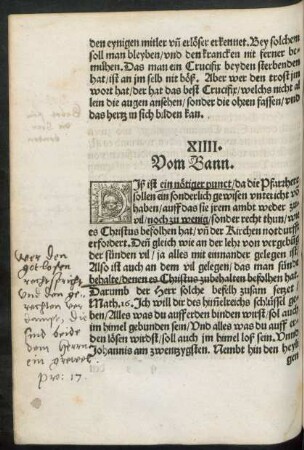 den eynigen mitler vñ erlöser erkennet. Bey solchem
soll man bleyben/vnd den krancken nit ferner be-
mühen. Das man ein Crucifix beyden sterbenden
hat/ist an jm selb nit böß. Aber wer den trost jm
wort hat/der hat das best Crucifix/welchs nicht al
lein die augen ansehen/sonder die ohren fassen/vnd
das hertz in sich bilden kan.
XIIII.
Vom Bann.
Diß ist ein nötiger punct/da die Pfarzherꝛ
sollen ein sonderlich gewysen vnterricht võ
haben/auff das sie jrem ambt weder zu
vil/noch zu wenig/sonder recht thun/wie
es Christus befolhen hat/vñ der Kirchen notdurfft
erfordert. Deñ gleich wie an der lehr von vergebūg
der sünden vil/ja alles mit einander gelegen ist
Also ist auch an dem vil gelegen/das man sünd
behalte/denen es Christus zubehalten befolhen hat
Darumb der Herr solche befelh zusam setzet
Math.16. Ich will dir des him̃elreichs schlüssel ge
ben/Alles was du auff erden binden wirst/sol auch
im himel gebunden sein/Vnd alles was du auff er
den lösen wirdst/soll auch jm himel lof sein. Vnnd
Johannis am zwentzygsten. Nembt hin den heyli
gen
wer den
gotlosen
recht spricht
und den ge-
rechten ver-
dampt, die
sind beide
dem herrn
ein grewel
pro: 17